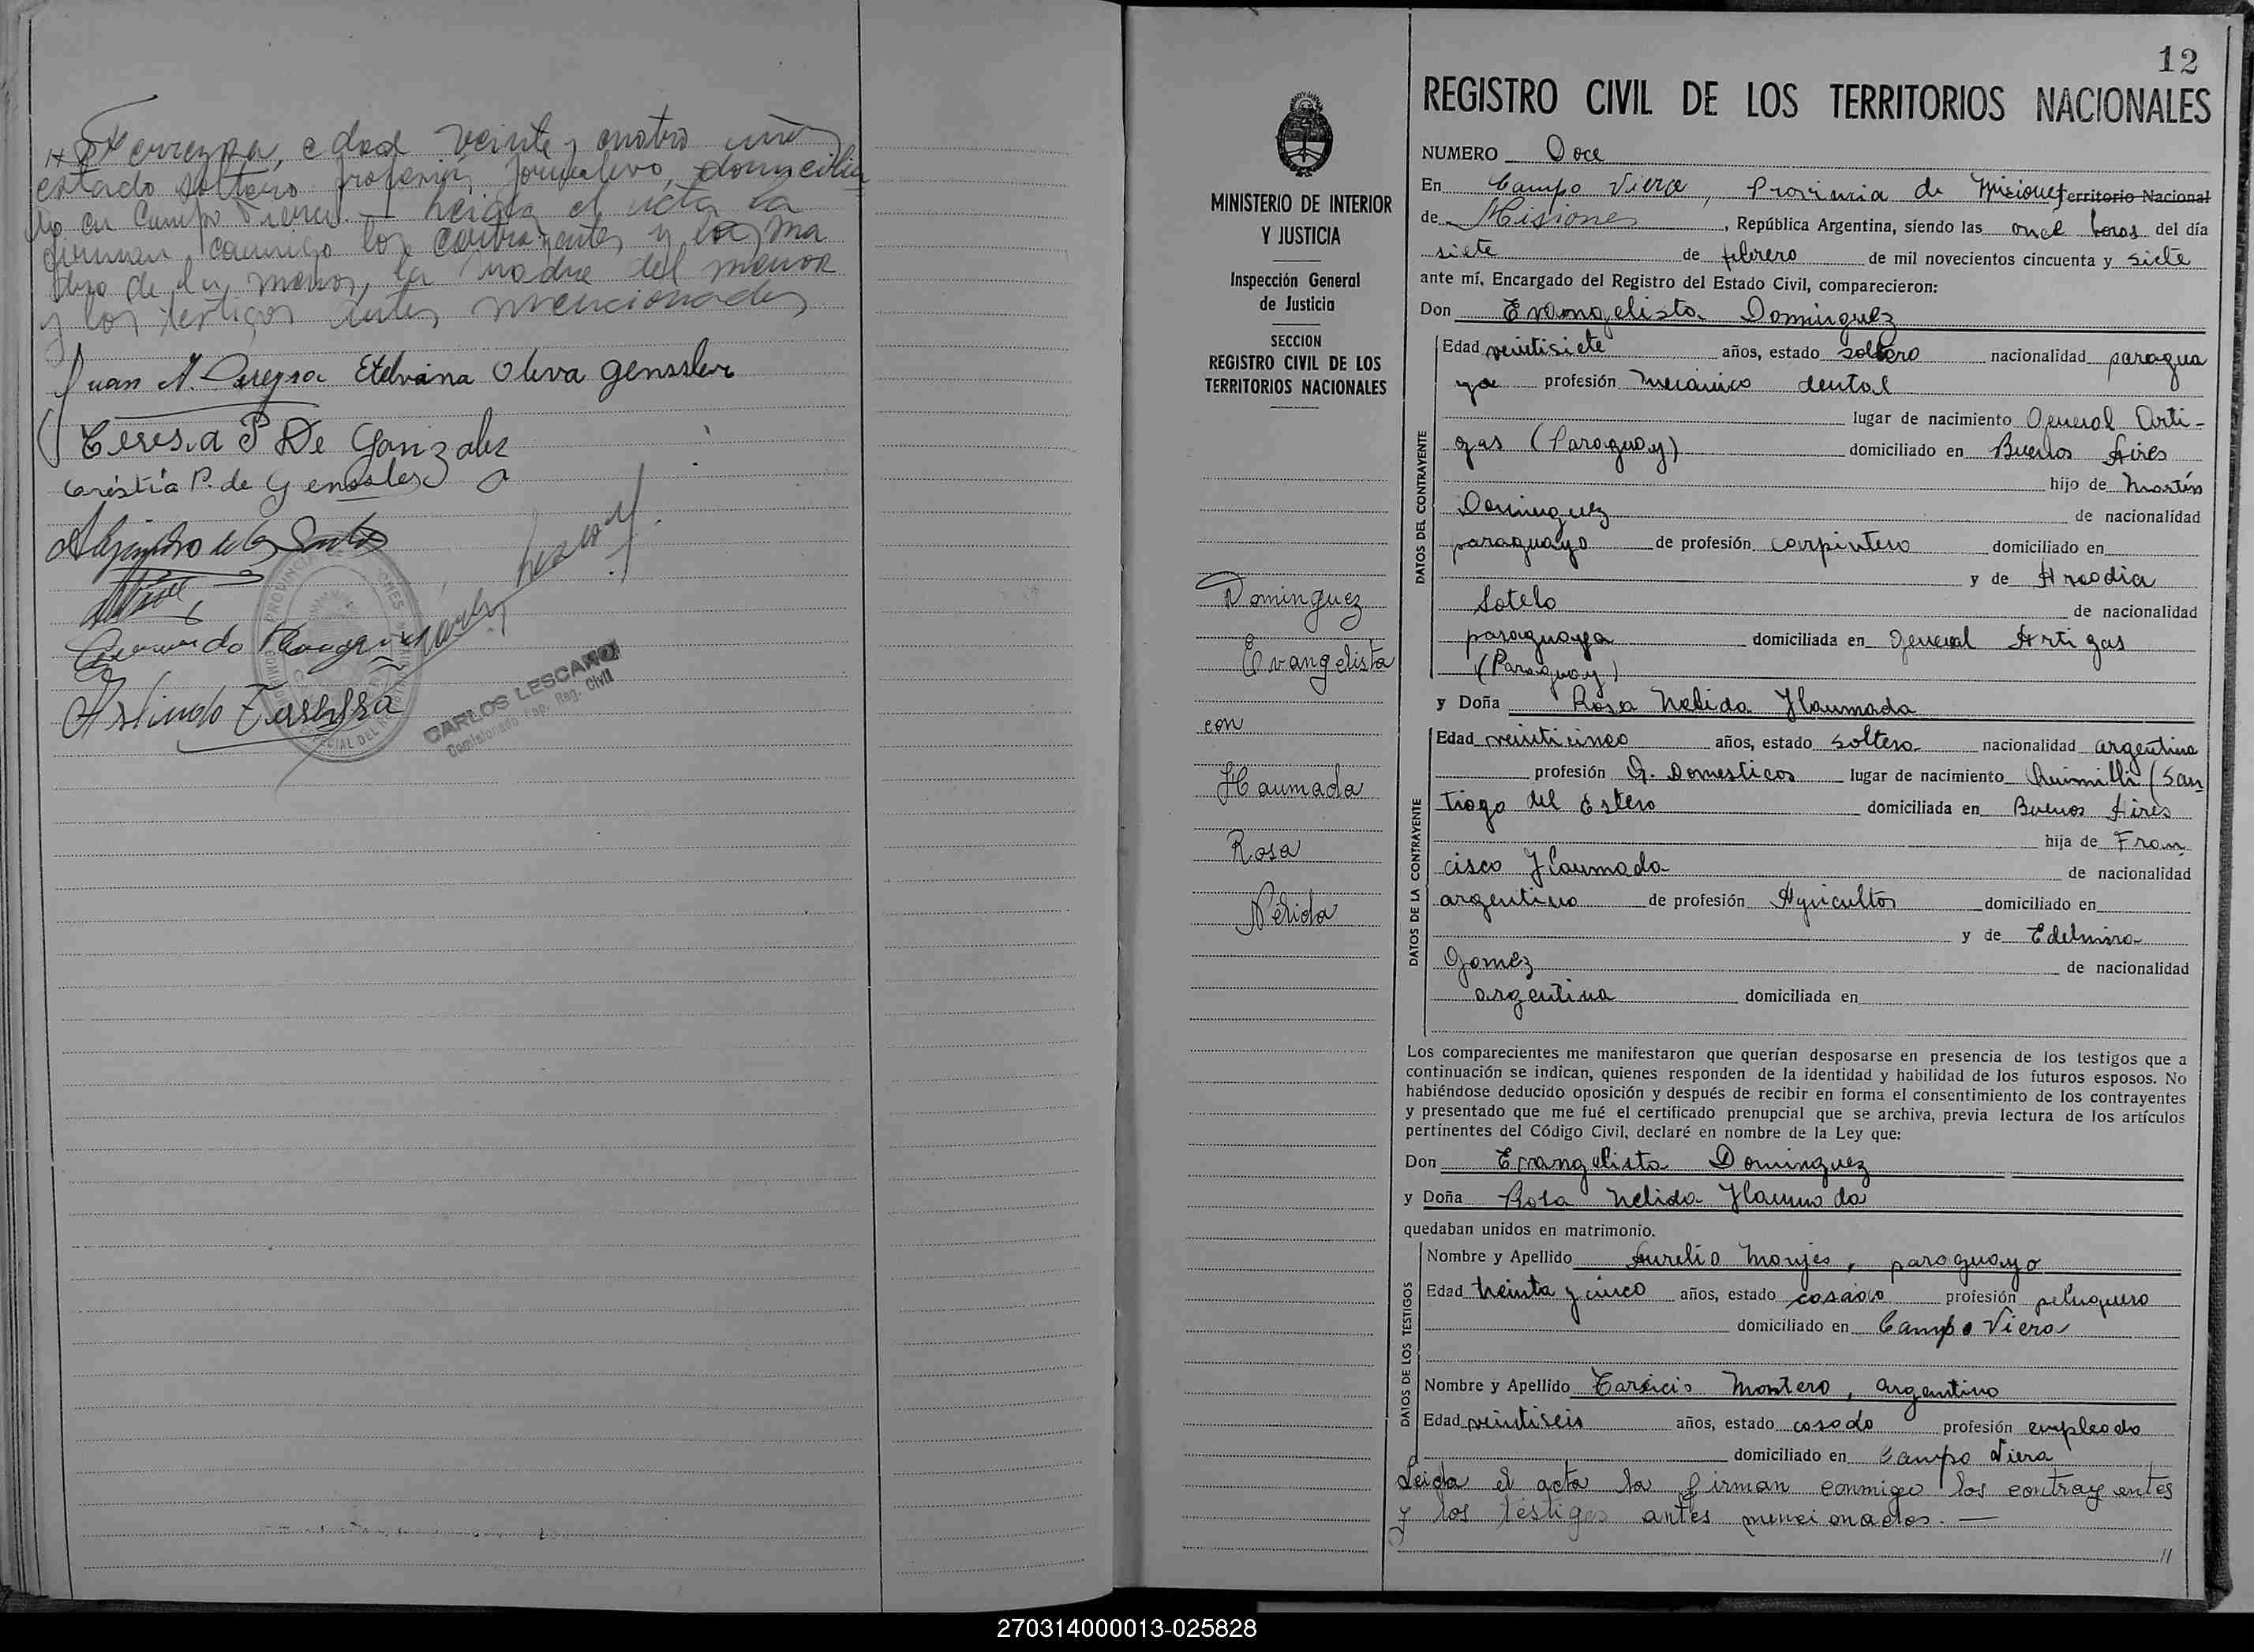 Ferreyra, edad veinte y cuatro años
estado soltero profesión jornalero, domicilia
do en Campo Viera. — Leida el acta la
firman conmigo los contrayentes y la ma
dre de la menor, la madre del menor
y los testigos antes mencionados
Juan A. Pereyra Etelvina Oliva Genssler
Teresa P De Gonzalez
P. de Genssler
Alejandro de los Santos
Arlindo
CARLOS LESCANO
Comisionado Esp. Reg. Civil
MINISTERIO DE INTERIOR
Y JUSTICIA
Inspección General
de Justicia
SECCION
REGISTRO CIVIL DE LOS
TERRITORIOS NACIONALES
Dominguez
Evangelista
con
Haumada
Rosa
Nélida
12
REGISTRO CIVIL DE LOS TERRITORIOS NACIONALES
NUMERO Doce
En Campo Viera, Provincia de Misiones Territorio Nacional
de Misiones, República Argentina, siendo las once horas del día
siete de febrero de mil novecientos cincuenta y siete
ante mí, Encargado del Registro del Estado Civil, comparecieron:
Don Evangelista Dominguez
DATOS DEL CONTRAYENTE
Edad veintisiete años, estado soltero nacionalidad paragua
ya profesión mecánico dental
lugar de nacimiento General Arti-
gas (Paraguay) domiciliado en Buenos Aires
hijo de Martín
Dominguez de nacionalidad
paraguayo de profesión carpintero domiciliado en
y de
Sotelo de nacionalidad
paraguaya domiciliada en General Artigas
(Paraguay)
y Doña Rosa Nelida Haumada
DATOS DE LA CONTRAYENTE
Edad veinticinco años, estado soltera nacionalidad argentina
profesión Q. Domesticos lugar de nacimiento Quimilli (San
tiago del Estero domiciliada en Buenos Aires
hija de Fran
cisco Haumada de nacionalidad
argentino de profesión Agricultor domiciliado en
y de Edelmira
Gomez de nacionalidad
argentina domiciliada en
Los comparecientes me manifestaron que querían desposarse en presencia de los testigos que a
continuación se indican, quienes responden de la identidad y habilidad de los futuros esposos. No
habiéndose deducido oposición y después de recibir en forma el consentimiento de los contrayentes
y presentado que me fué el certificado prenupcial que se archiva, previa lectura de los artículos
pertinentes del Código Civil, declaré en nombre de la Ley que:
Don Evangelista Dominguez
y Doña Rosa Nelida Haumada
quedaban unidos en matrimonio.
DATOS DE LOS TESTIGOS
Nombre y Apellido Aurelio Monjes, paraguayo
Edad treinta y cinco años, estado casado profesión peluquero
domiciliado en Campo Viera
Nombre y Apellido Tarsicio Montero, argentino
Edad veintiseis años, estado casado profesión empleado
domiciliado en Campo Viera
Leida el acta la firman conmigo los contrayentes
y los testigos antes mencionados. —
//
270314000013-025828